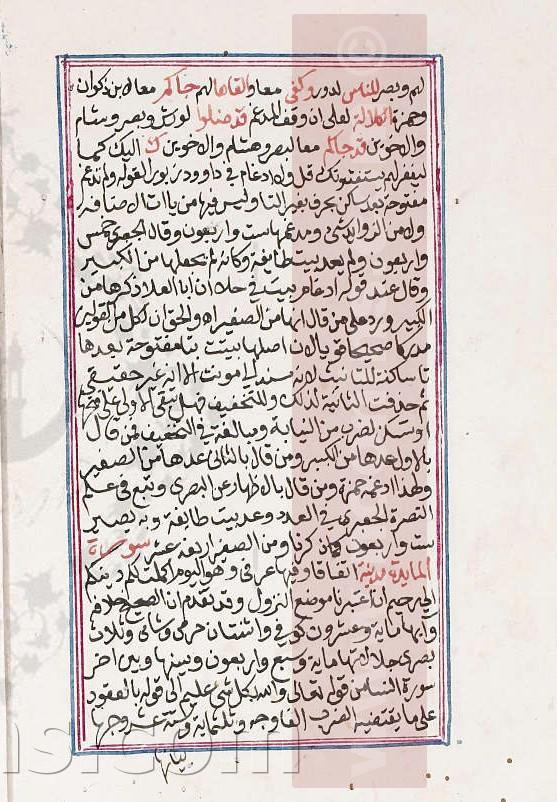 لهم وبصر للناس لدور وكفى معا والقاها لهم جاكم معا لابن ذكوان
وحمزة الكلالة لعلى ان وقف المدغم قد ضلوا لورش وبصر وشام
والاخوين قد جاكم معا لبصر وهشام والاخوين ك اليك كما
ليغفر لهم يستفتونك قل ولا ادغام في داوود زبورا لقوله ولم تدغم
مفتوحة بعد ساكن بحرف بغير التا وليس فيها من ياات الاضافة
ولا من الزوائد شى ومدغمها ست واربعون وقال الجعبرى خمس
واربعون ولم يعد بيت طايفة وكانه لم يجعلها من الكبير
وقال عند قوله ادغام بيت في حلا ان ابا العلا ذكرها من
الكبير ورد على من قال انها من الصغير اه والحق ان لكل من القولين
مدركا صحيحا قويا لان اصلها بيتت بتا مفتوحة بعدها
تا ساكنة للتانيث لانه مسند الى مونث الا انه غير حقيقى
ثم حذفت الثانية لذلك وللتخفيف فهل تبقى الاولى على فتحها
او تسكن لضرب من النيابة ومبالغة في التخفيف فمن قال
بالاول عدها من الكبير ومن قال بالثانى عدها من الصغير
ولهذا ادغمه حمزة ومن قال بالاظهار عن البصرى وتبع في علم
النصرة الجعبرى في العدد وعد بيت طايفة وبه يصير
ست واربعون كما ذكرنا ومن الصغير اربعة عشر سورة
المايدة مدنية اتفاقا وفيها عرفى وهو اليوم اكملت لكم دينكم
الى رحيم ان اعتبرنا موضع النزول وقد تقدم ان الصحيح خلافه
وآيها ماية وعشرون كوفى واثنتان حرمى وشامى وثلاث
بصرى جلالاتها ماية وسبع واربعون وبينها وبين اخر
سورة النساء من قوله تعالى والله بكل شي عليم الى قوله بالعقود
على ما يقتضيه الضرب الفا وجه وثلثماية وستة عشر وجها
بيانها